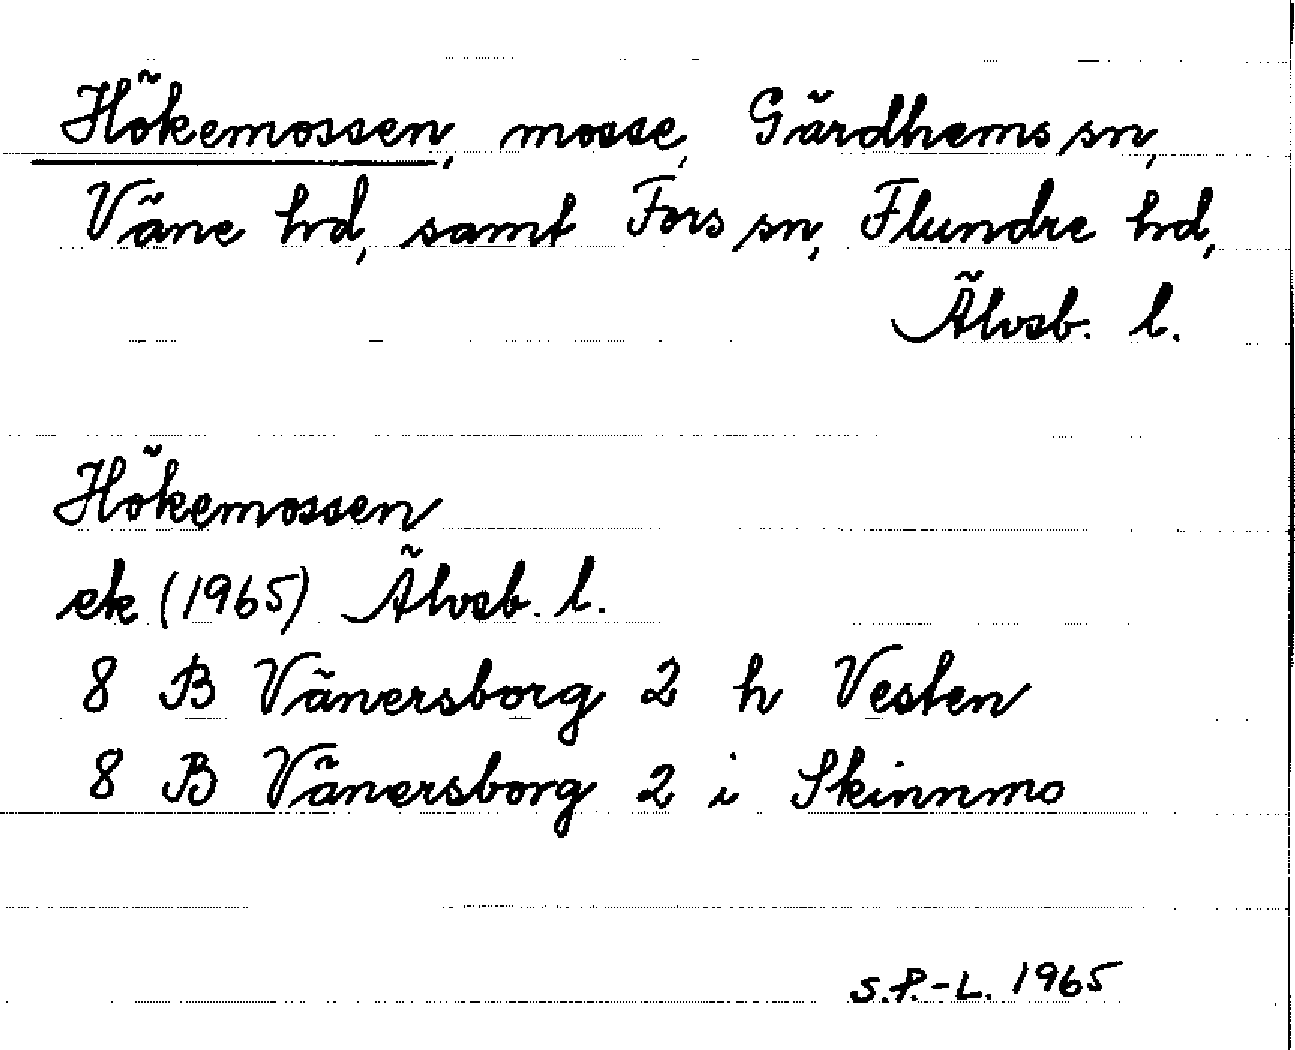 Hökemossen, mosse, Gärdhems sn,
Väne hd, samt Fors sn, Flundre hd,
Älvsb. l.
Hökemossen
ek (1965) Älvsb. l.
8 B Vänersborg 2 h Vesten
8 B Vänersborg 2 i Skinnmo
S.P.-L. 1965